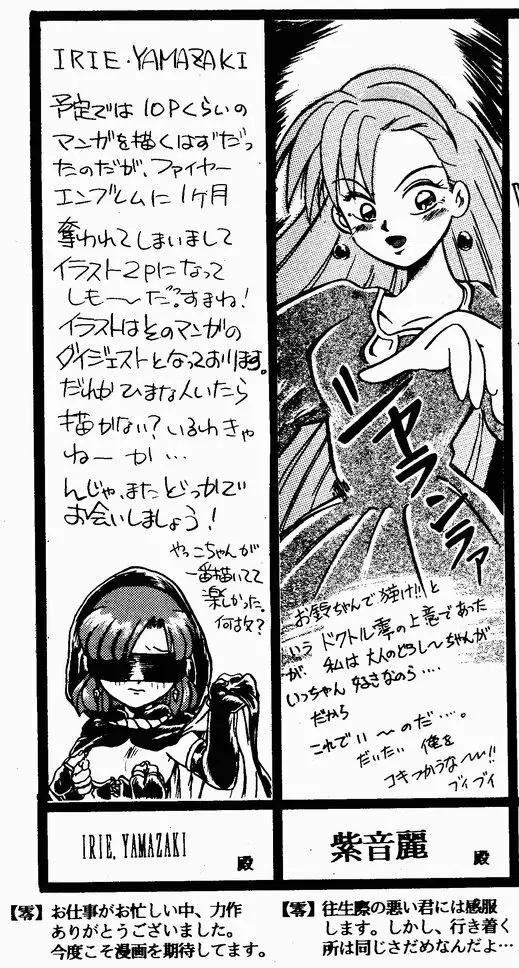 IRIE・YAMAZAKI
予定では10Pくらいの
マンガを描くはずだっ
たのだが、ファイヤー
エンブレムに1ヶ月
奪われてしまいまして
イラスト2Pになって
しも〜〜だ?すまね!
イラストはそのマンガの
ダイジェストとなっております。
だれか ひまな人いたら
描かない?いるわきゃ
ねーか…
んじゃ、またどっかで
お会いしましょう!
やっこちゃんが
一番描いてて
楽しかった。
何故?
IRIE, YAMAZAKI 殿
【零】お仕事がお忙しい中、力作
ありがとうございました。
今度こそ漫画を期待してます。
ジャランラァ
お鈴ちゃんで強け!!と
いう ドクトル零の上意であった
が、私は大人のどろし〜ちゃんが
いっちゃん 好きなのら‥‥
だから
これでい〜のだ‥‥。
だいたい 俺を
コキつかうな〜〜!!
ブイブイ
紫音麗 殿
【零】往生際の悪い君には感服
します。しかし、行き着く
所は同じさだめなんだよ…